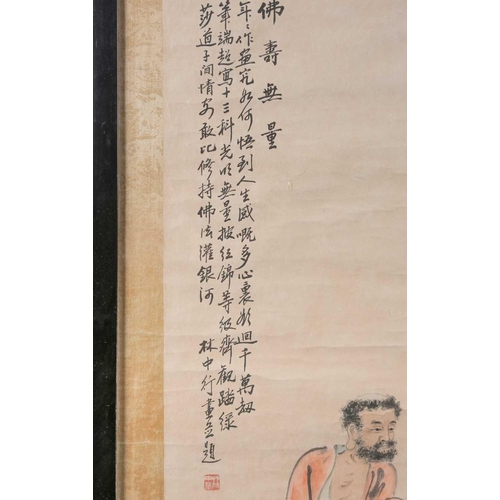 佛壽無量
年年作畫究如何悟到人生感嘅多心裏欲迴千萬劫
筆端超寫十三科光明無量披紅錦等級齊觀踏綠
莎道子間情安敢比修持佛法灌銀河
林中行畫並題